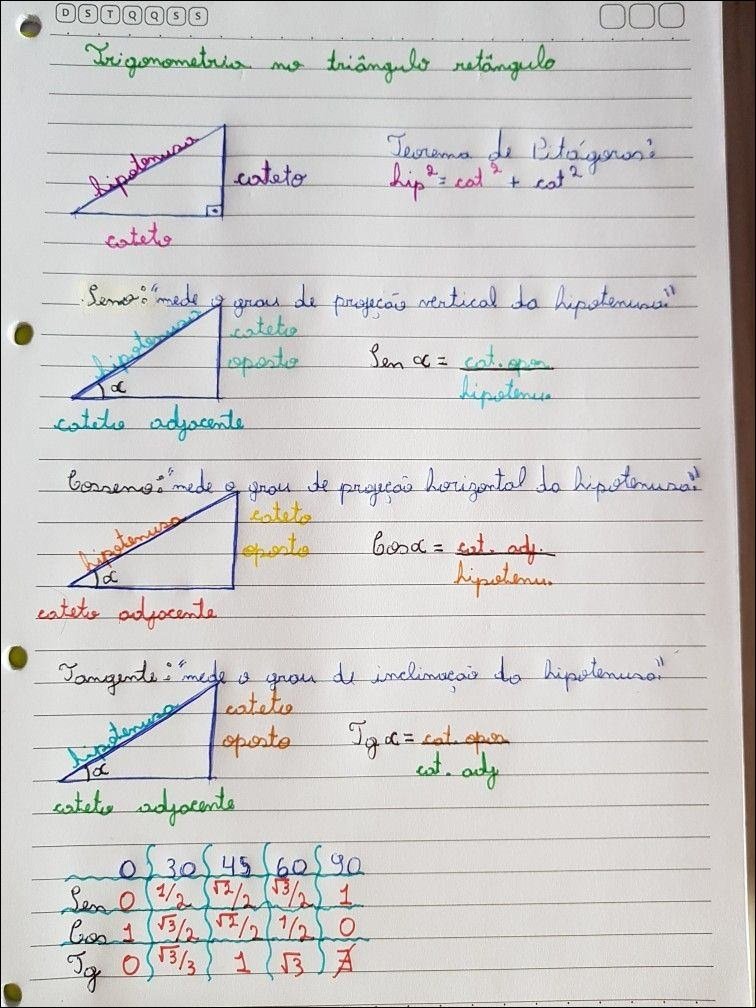 D S T Q Q S S
Trigonometria no triângulo retângulo
hipotenusa
cateto
cateto
Teorema de Pitágoras:
hip² = cat² + cat²
Seno: "mede o grau de projeção vertical da hipotenusa"
hipotenusa
cateto
oposto
α
cateto adjacente
Sen α = cat. opos
hipotenu.
Cosseno: "mede o grau de projeção horizontal da hipotenusa"
hipotenusa
cateto
oposto
α
cateto adjacente
Cos α = cat. adj.
hipotenu.
Tangente: "mede o grau de inclinação da hipotenusa"
hipotenusa
cateto
oposto
α
cateto adjacente
Tg α = cat. opos
cat. adj
0 30 45 60 90
Sen 0 1/2 √2/2 √3/2 1
Cos 1 √3/2 √2/2 1/2 0
Tg 0 √3/3 1 √3 ∄